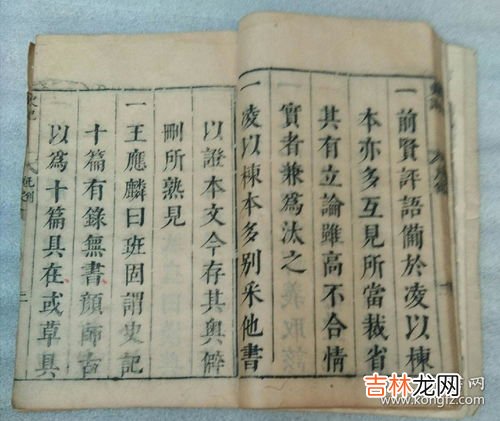 一前賢評語備於凌以棟
本亦多互見所當裁省
其有立論雖高不合情
實者兼爲汰之
一凌以棟本多別采他書
以證本文今存其奧僻
刪所熟見
一王應麟曰班固謂史記
十篇有錄無書顏師古
以爲十篇具在或草具
凡例
吉林龙网